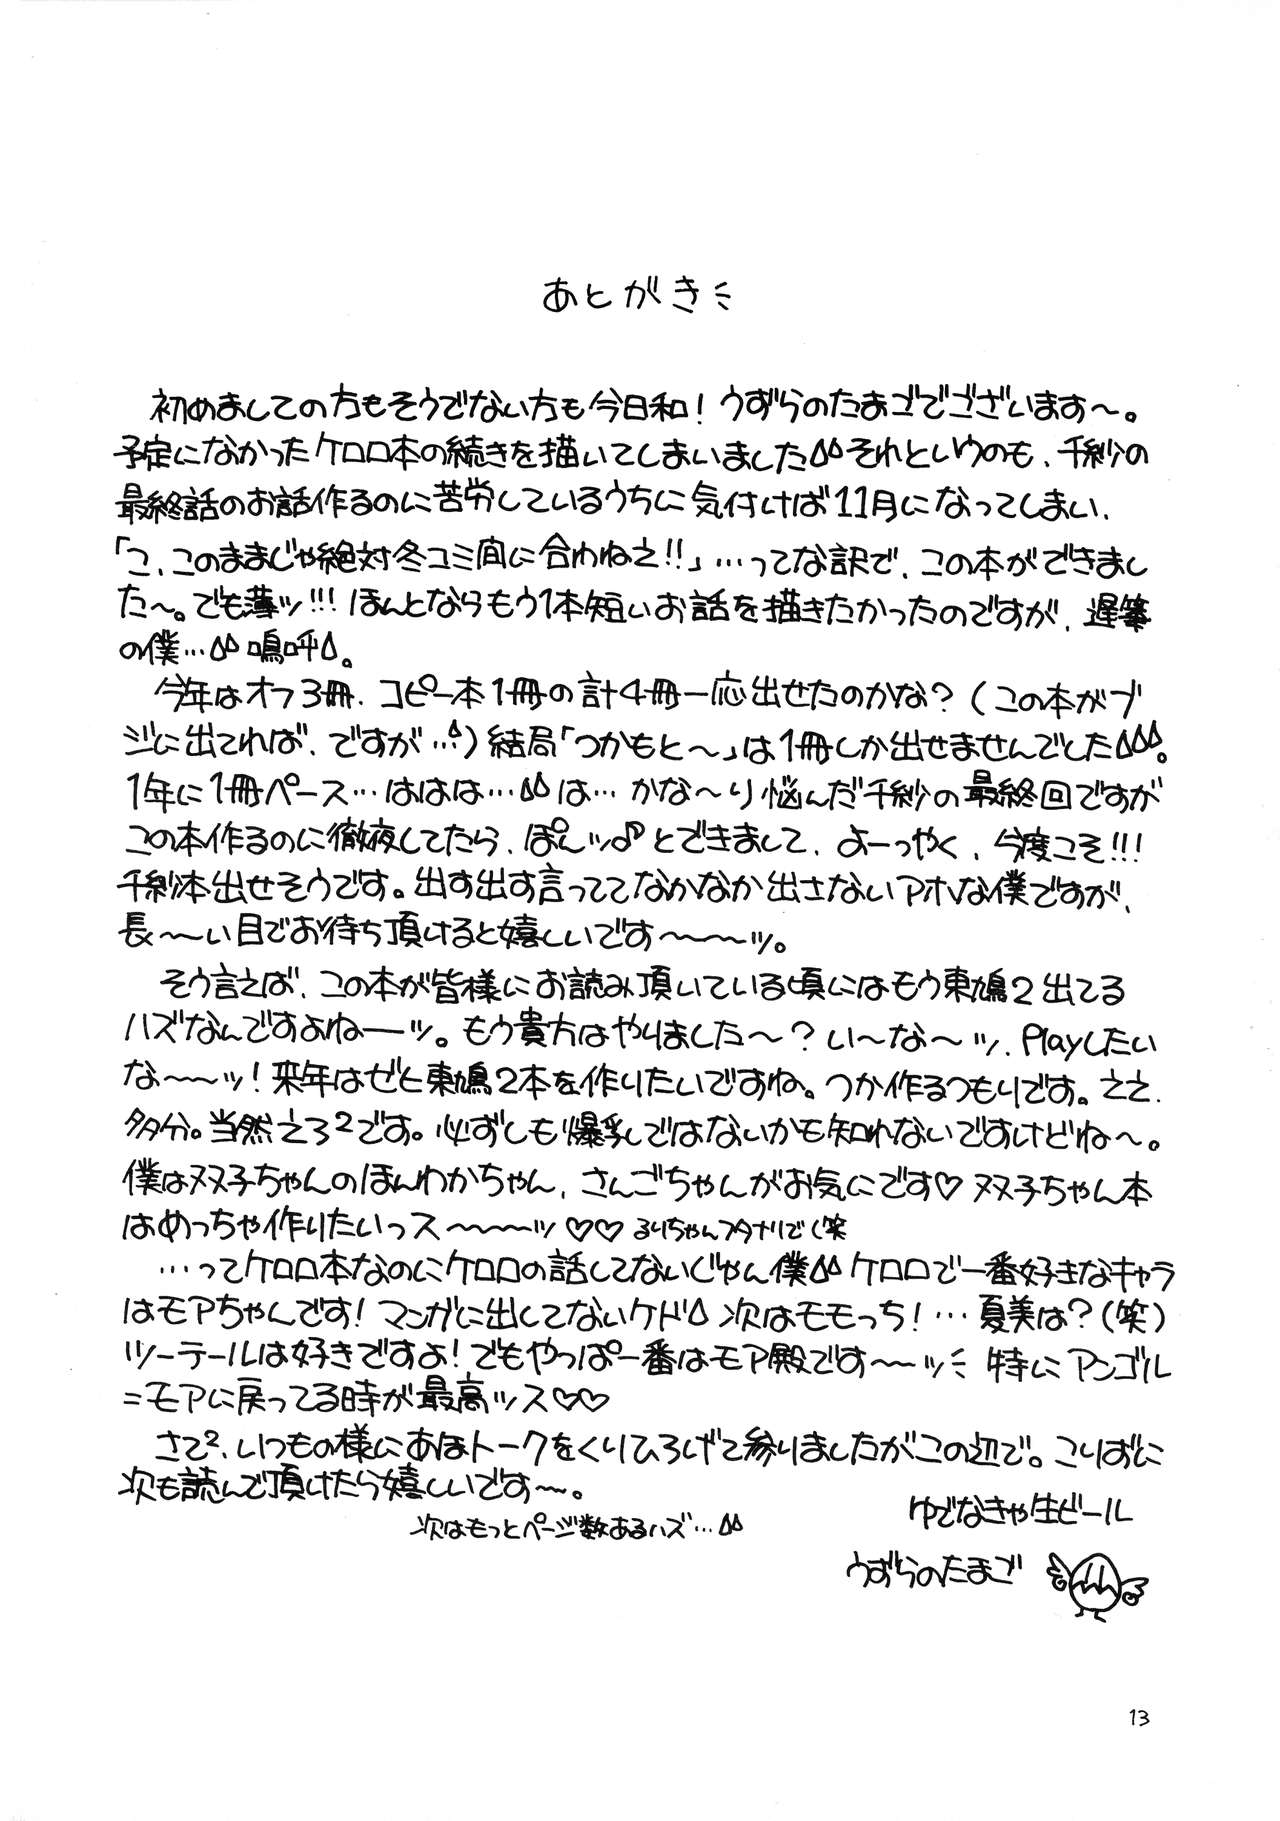 あとがき
初めましての方もそうでない方も今日和!うずらのたまごでございます〜。
予定になかったケロロ本の続きを描いてしまいました それというのも、千紗の
最終話のお話作るのに苦労しているうちに気付けば11月になってしまい、
「こ、このままじゃ絶対冬コミ間に合わねえ!!」…ってな訳で、この本ができまし
た〜。でも薄ッ!!!ほんとならもう1本短いお話を描きたかったのですが、遅筆
の僕… 嗚呼 。
今年はオフ3冊、コピー本1冊の計4冊一応出せたのかな?(この本がブ
ジに出てれば、ですが…)結局「つかもと〜」は1冊しか出せませんでした 。
1年に1冊ペース…ははは… は…かな〜り悩んだ千紗の最終回ですが
この本作るのに徹夜してたら、ぽんッ♪とできまして、よーっやく、今度こそ!!!
千紗本出せそうです。出す出す言っててなかなか出さないアホな僕ですが、
長〜〜い目でお待ち頂けると嬉しいです〜〜〜ッ。
そう言えば、この本が皆様にお読み頂いている頃にはもう東鳩2出てる
ハズなんですよねーッ。もう貴方はやりました〜?い〜な〜ッ、Playしたい
な〜〜ッ!来年はぜひ東鳩2本を作りたいですね。つか作るつもりです。ええ、
多分。当然えろ²です。必ずしも爆乳ではないかも知れないですけどね〜。
僕は双子ちゃんのほんわかちゃん、さんごちゃんがお気にです♡双子ちゃん本
はめっちゃ作りたいっス〜〜〜ッ♡♡るりちゃんフタナリで(笑
…ってケロロ本なのにケロロの話してないじゃん僕 ケロロで一番好きなキャラ
はモアちゃんです!マンガに出してないケド 次はモモっち!…夏美は?(笑)
ツーテールは好きですよ!でもやっぱ一番はモア殿です〜〜ッ 特にアンゴル
=モアに戻ってる時が最高ッス♡♡
さて²、いつもの様にあほトークをくりひろげて参りましたがこの辺で。こりずに
次も読んで頂けたら嬉しいです〜。
次はもっとページ数あるハズ…
ゆでなきゃ生ビール
うずらのたまご
13